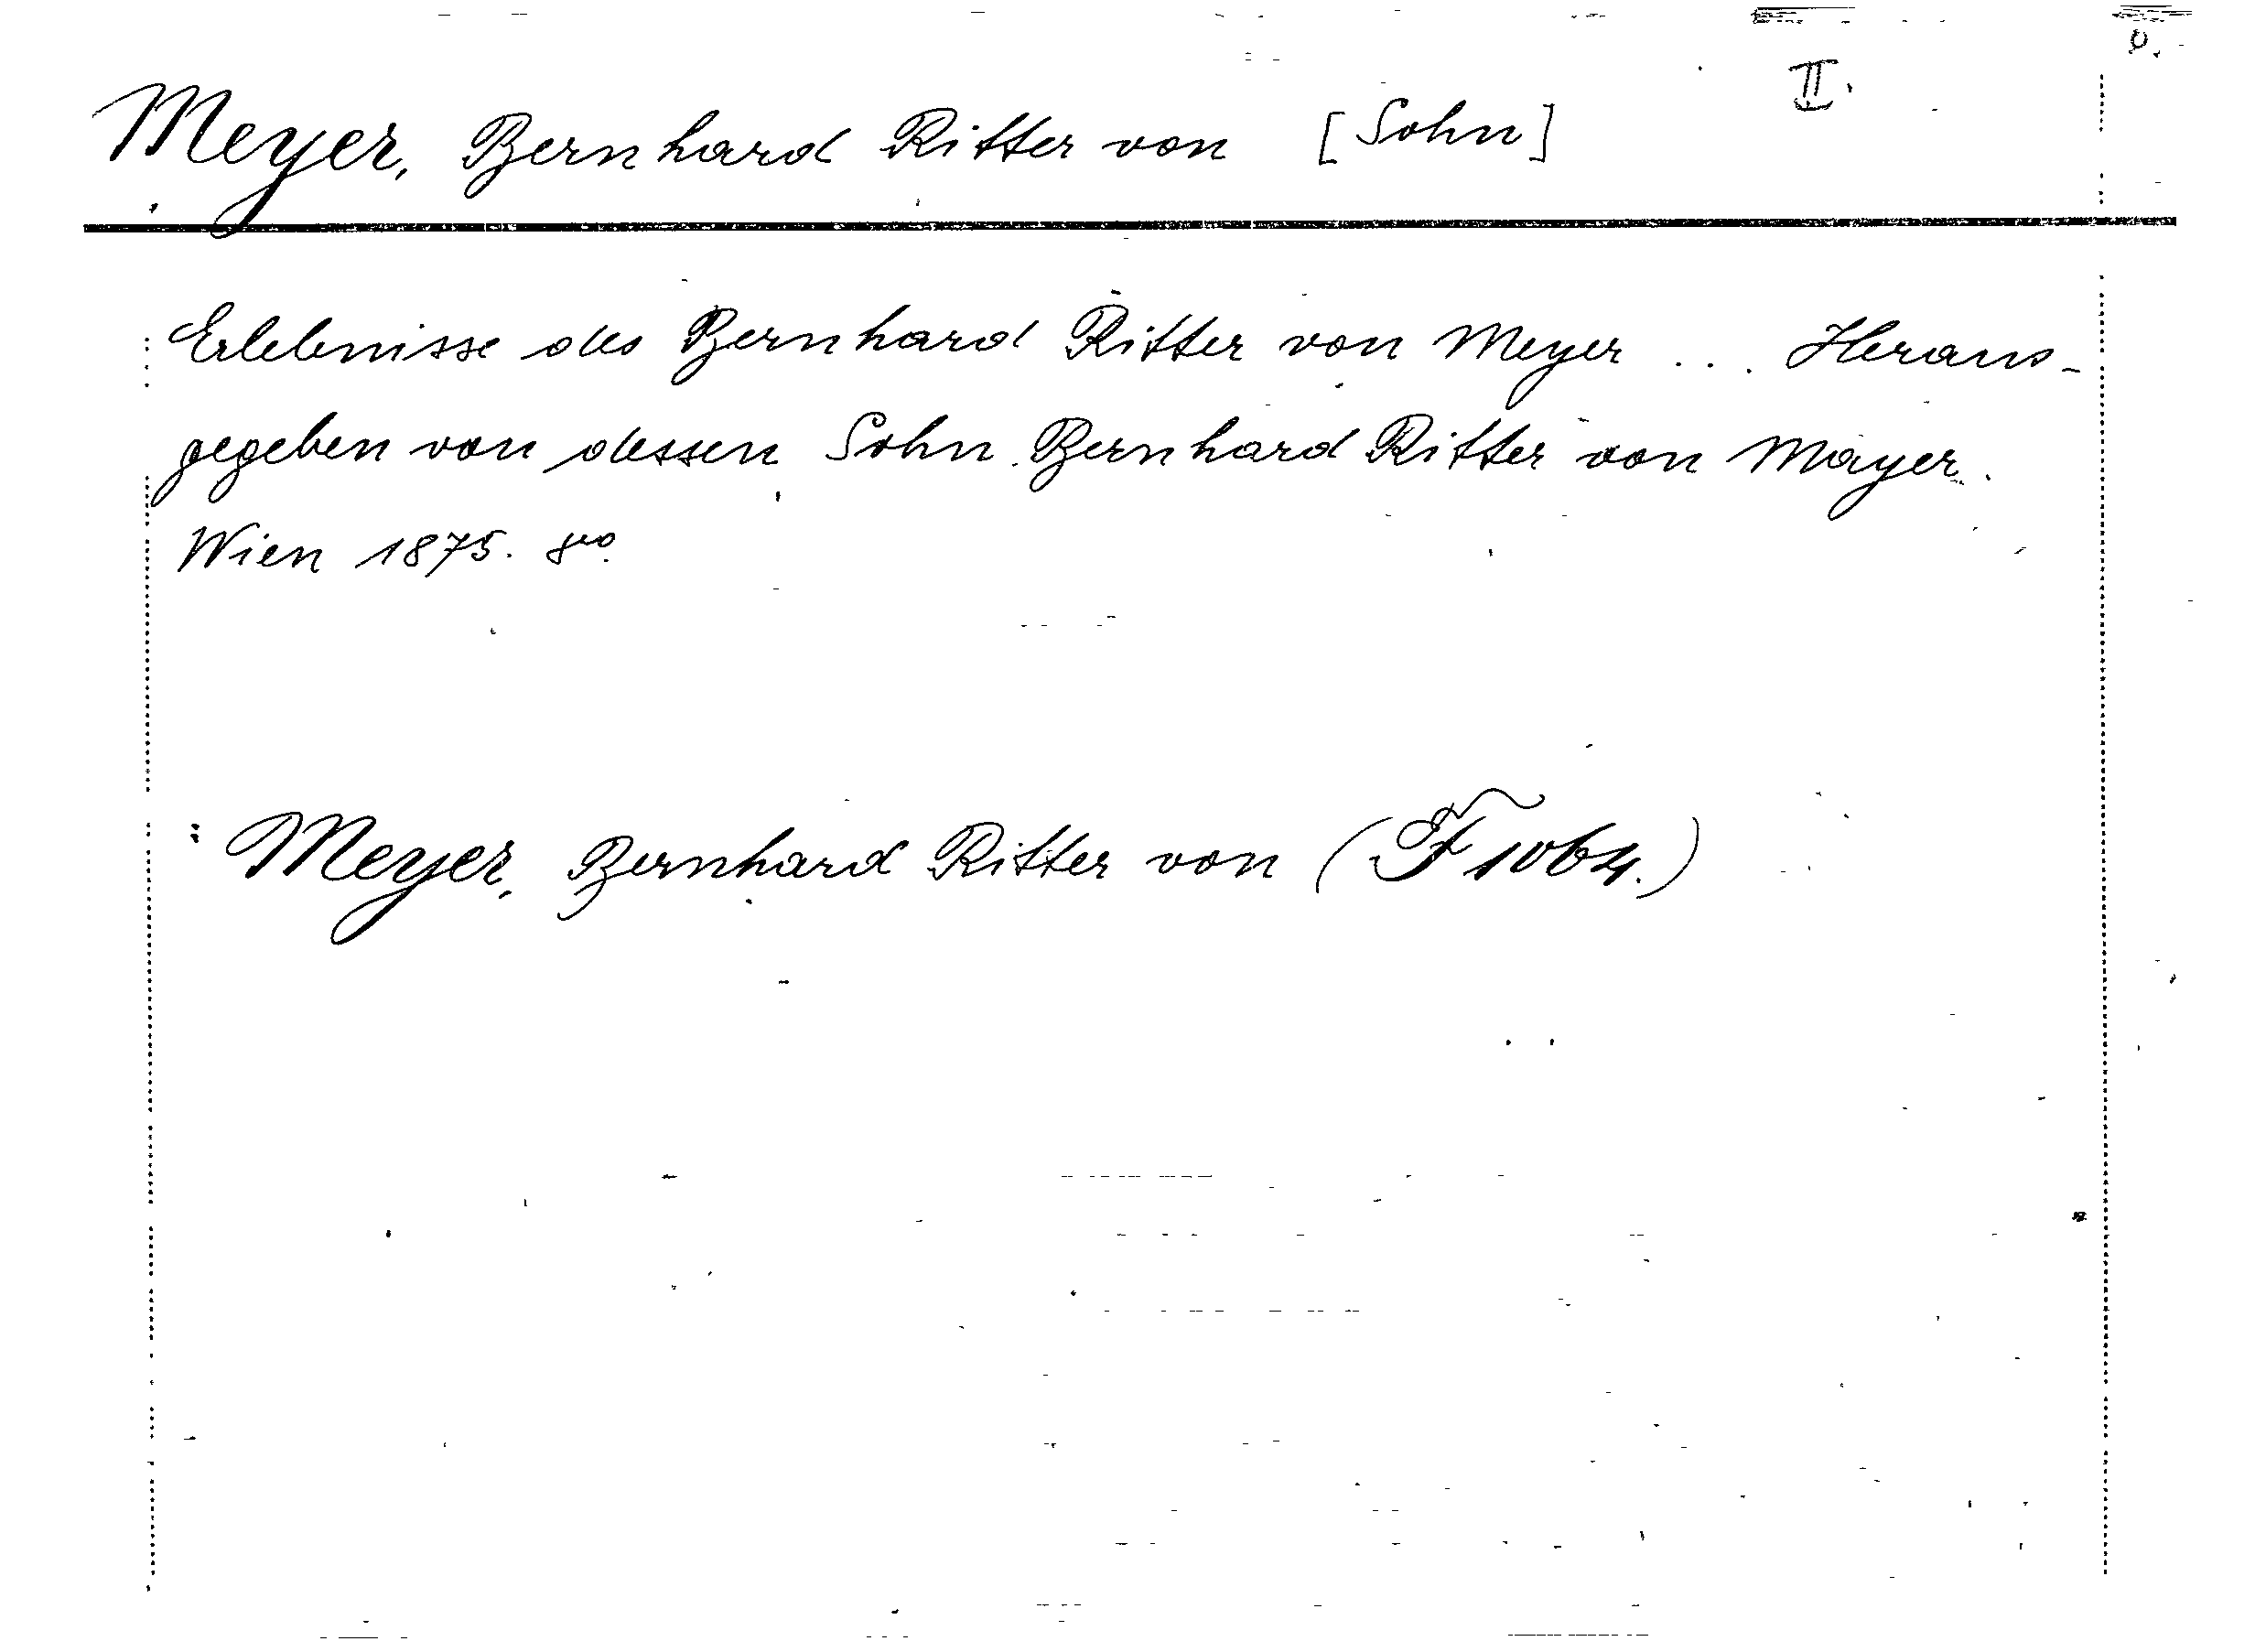 II.
Meyer, Bernhard Ritter von [Sohn]
Erlebnisse des Bernhard Ritter von Meyer ... Heraus-
gegeben von dessen Sohn Bernhard Ritter von Mayer.
Wien 1875. 8vo.
: Meyer, Bernhard Ritter von (F 1064.)